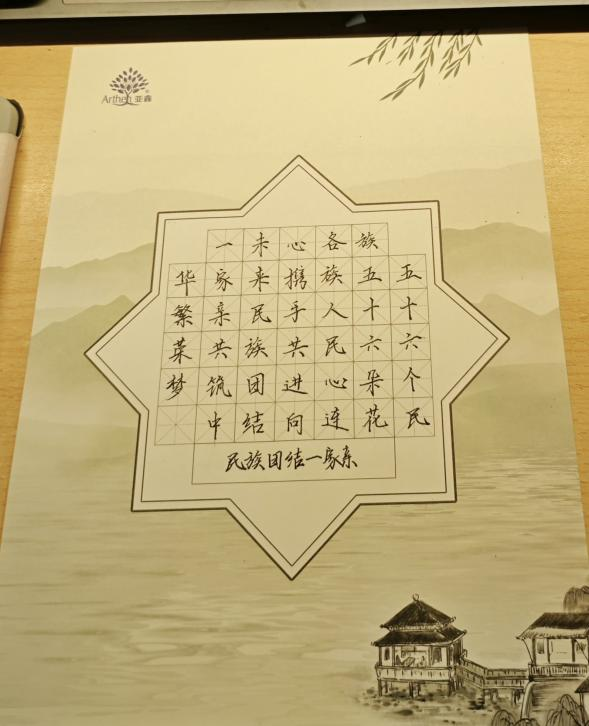 Arthen 亚鑫
五十六个民
族五十六朵花
各族人民心连
心携手共进向
未来民族团结
一家亲共筑中
华繁荣梦
民族团结一家亲